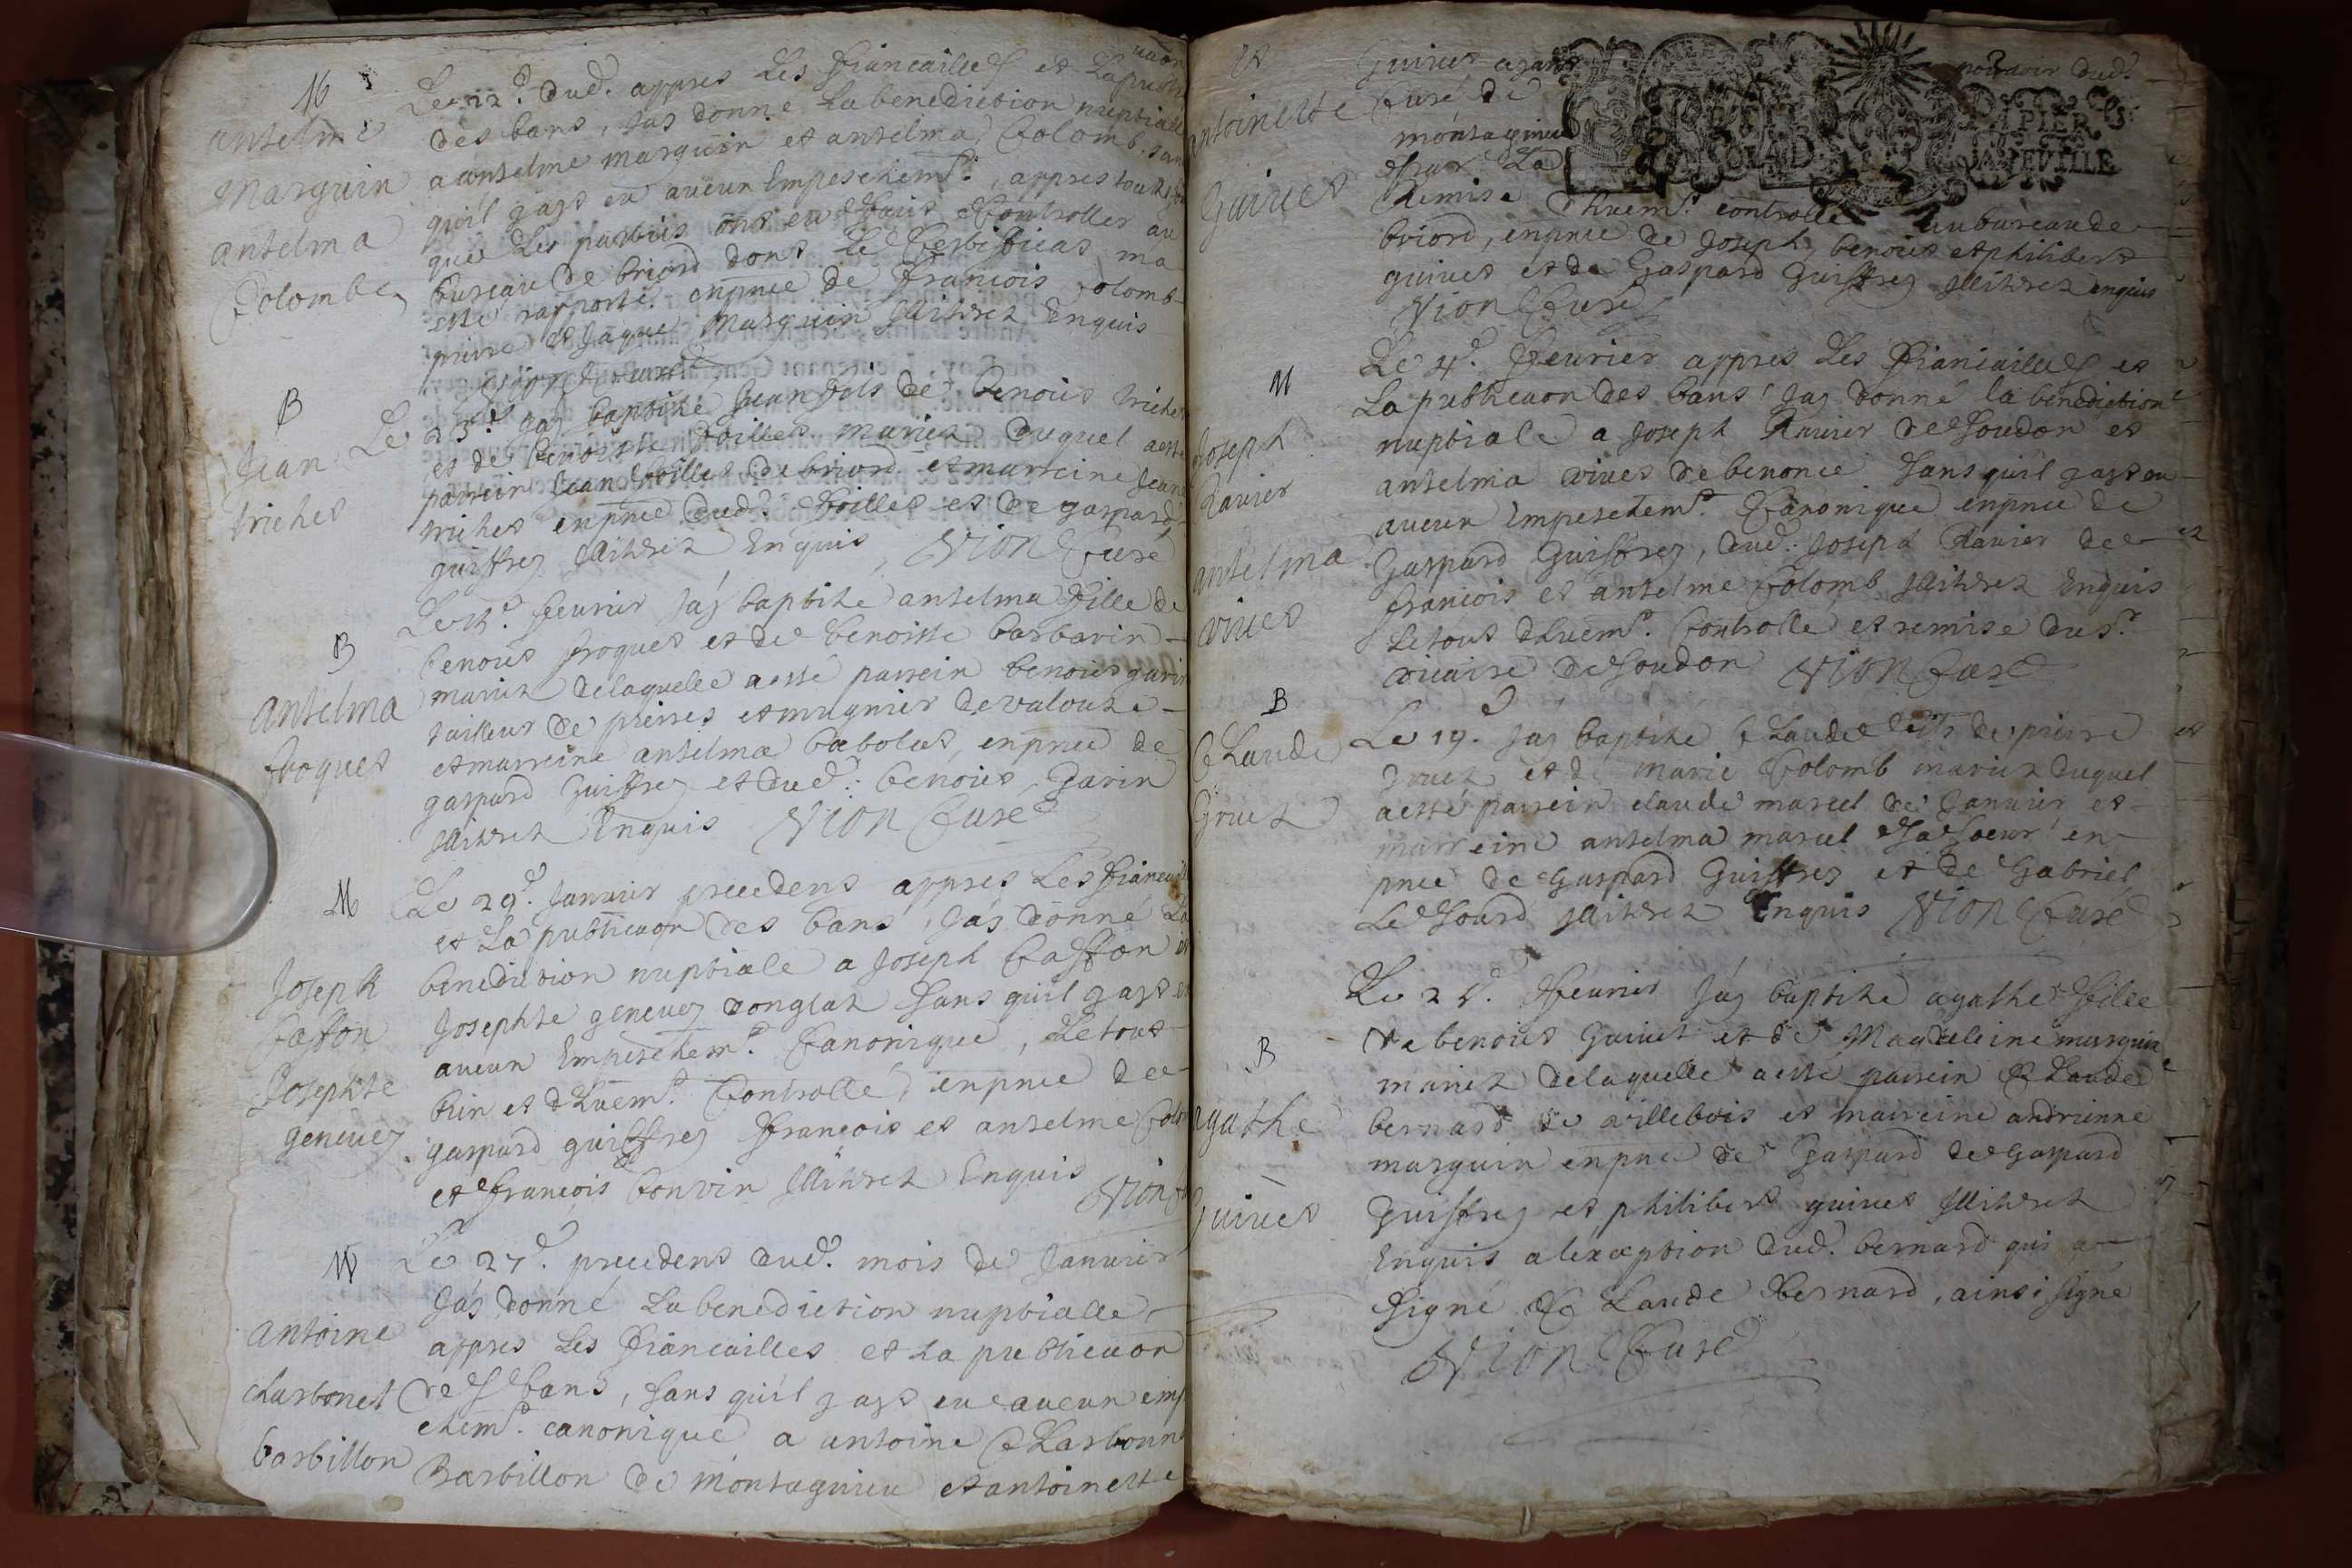 M
anselme
Marguin
anselma
Colombe
Le 22e. dud. appres Les fiancailles et La publicaon
des bans, Jay donné La benediction nuptialle
a anselme marguin et anselma Colomb, sans
quil y ayt eu aucun Empeschemt., appres toutesfois
que Les parties ont eu faict Controller au
bureau de briord dont Le Certificat ma
esté rapporté enpnce de francois Colomb
pierre et Jaque Marguin Illitrez Enquis
Vion Curé
B
Jean
trichet
Le 23e. Jay baptisé Jean fils de benoict trichet
et de benoiste Poillet mariez duquel a esté
parrein Jean Poillet de briord et marreine Jeane
trichet enpnce dud. Poillet et de gaspard
guiffrey Illitrez Enquis Vion Curé
B
anselma
froquet
feurier Jay baptisé anselma fille de
benoict froquet et de benoiste barbarin
mariez delaquelle a esté parrein benoict garin
tailleur de pierres et mugnier de valouze
et marreine anselma babolat, enpnce de
gaspard Guiffrey et dud. benoict Garin
Illitrez Enquis Vion Curé
M
Joseph
Caston
Josephte
geneuey
Le 29e. Januier precedent appres Les fiancailles
et La publicaon des bans, Jay donné La
benediction nuptiale a Joseph Caston et
Josephte geneuey donglas sans quil y ayt eu
aucun Empeschemt. Canonique, Le tout
bien et dhuemt. Controllé, enpnce de
gaspard guiffrey francois et anselme Colomb
et francois bonvin Illitrez Enquis
Vion
M
antoine
charbonet
barbillon
Le 27e. precedent dud. mois de Januier
Jay donné La benediction nuptialle
appres Les fiancailles et La publicaon
des bans, sans quil y ayt eu aucun emp
chemt. canonique a antoine Charbonn
Barbillon de montagnieu et antoinette
et
antoinette
Guiuet
Guiuet ayant pouuoir dud.
Curé de
montagnieu
et par La
Remise dhuemt. controllé au bureau de
briord, enpnce de Joseph, benoict et philibert
guiuet et de Gaspard Guiffrey Illitrez enquis
Vion Curé
PAPIER
M
Joseph
Rauier
anselma
viuet
Le 4e. feurier appres Les fiancailles et
La publicaon des bans Jay donné la benediction
nuptiale a Joseph Rauier de soudon et
anselma viuet de benonce sans quil y ayt eu
aucun Empeschemt. Canonique enpnce de
Gaspard Guiffrey, dud. Joseph Rauier de
francois et anselme Colomb Illitrez Enquis
Le tout dhuemt. Controllé et remise du sr.
vicaire de soudon Vion Curé
B
Claude
Gruet
Le 19. Jay baptisé Claude fils de pierre
Gruet et de marie Colomb mariez duquel
a esté parrein claude marcel de Januier et
marreine anselma marcel sa soeur en
pnce de Gaspard Guiffrey et de Gabriel
Le sourd Illitrez Enquis Vion Curé
B
agathe
Guiuet
feurier Jay baptisé agathe fille
de benoict Guiuet et de Magdeleine marguin
mariez delaquelle a esté parrein Claude
bernard de villebois et marreine andrienne
marguin enpnce de Gaspard de gaspard
Guiffrey et philibert guiuet Illitrez
Enquis a lexception dud. bernard qui a
signé Claude Bernard, ainsi signé
Vion Curé